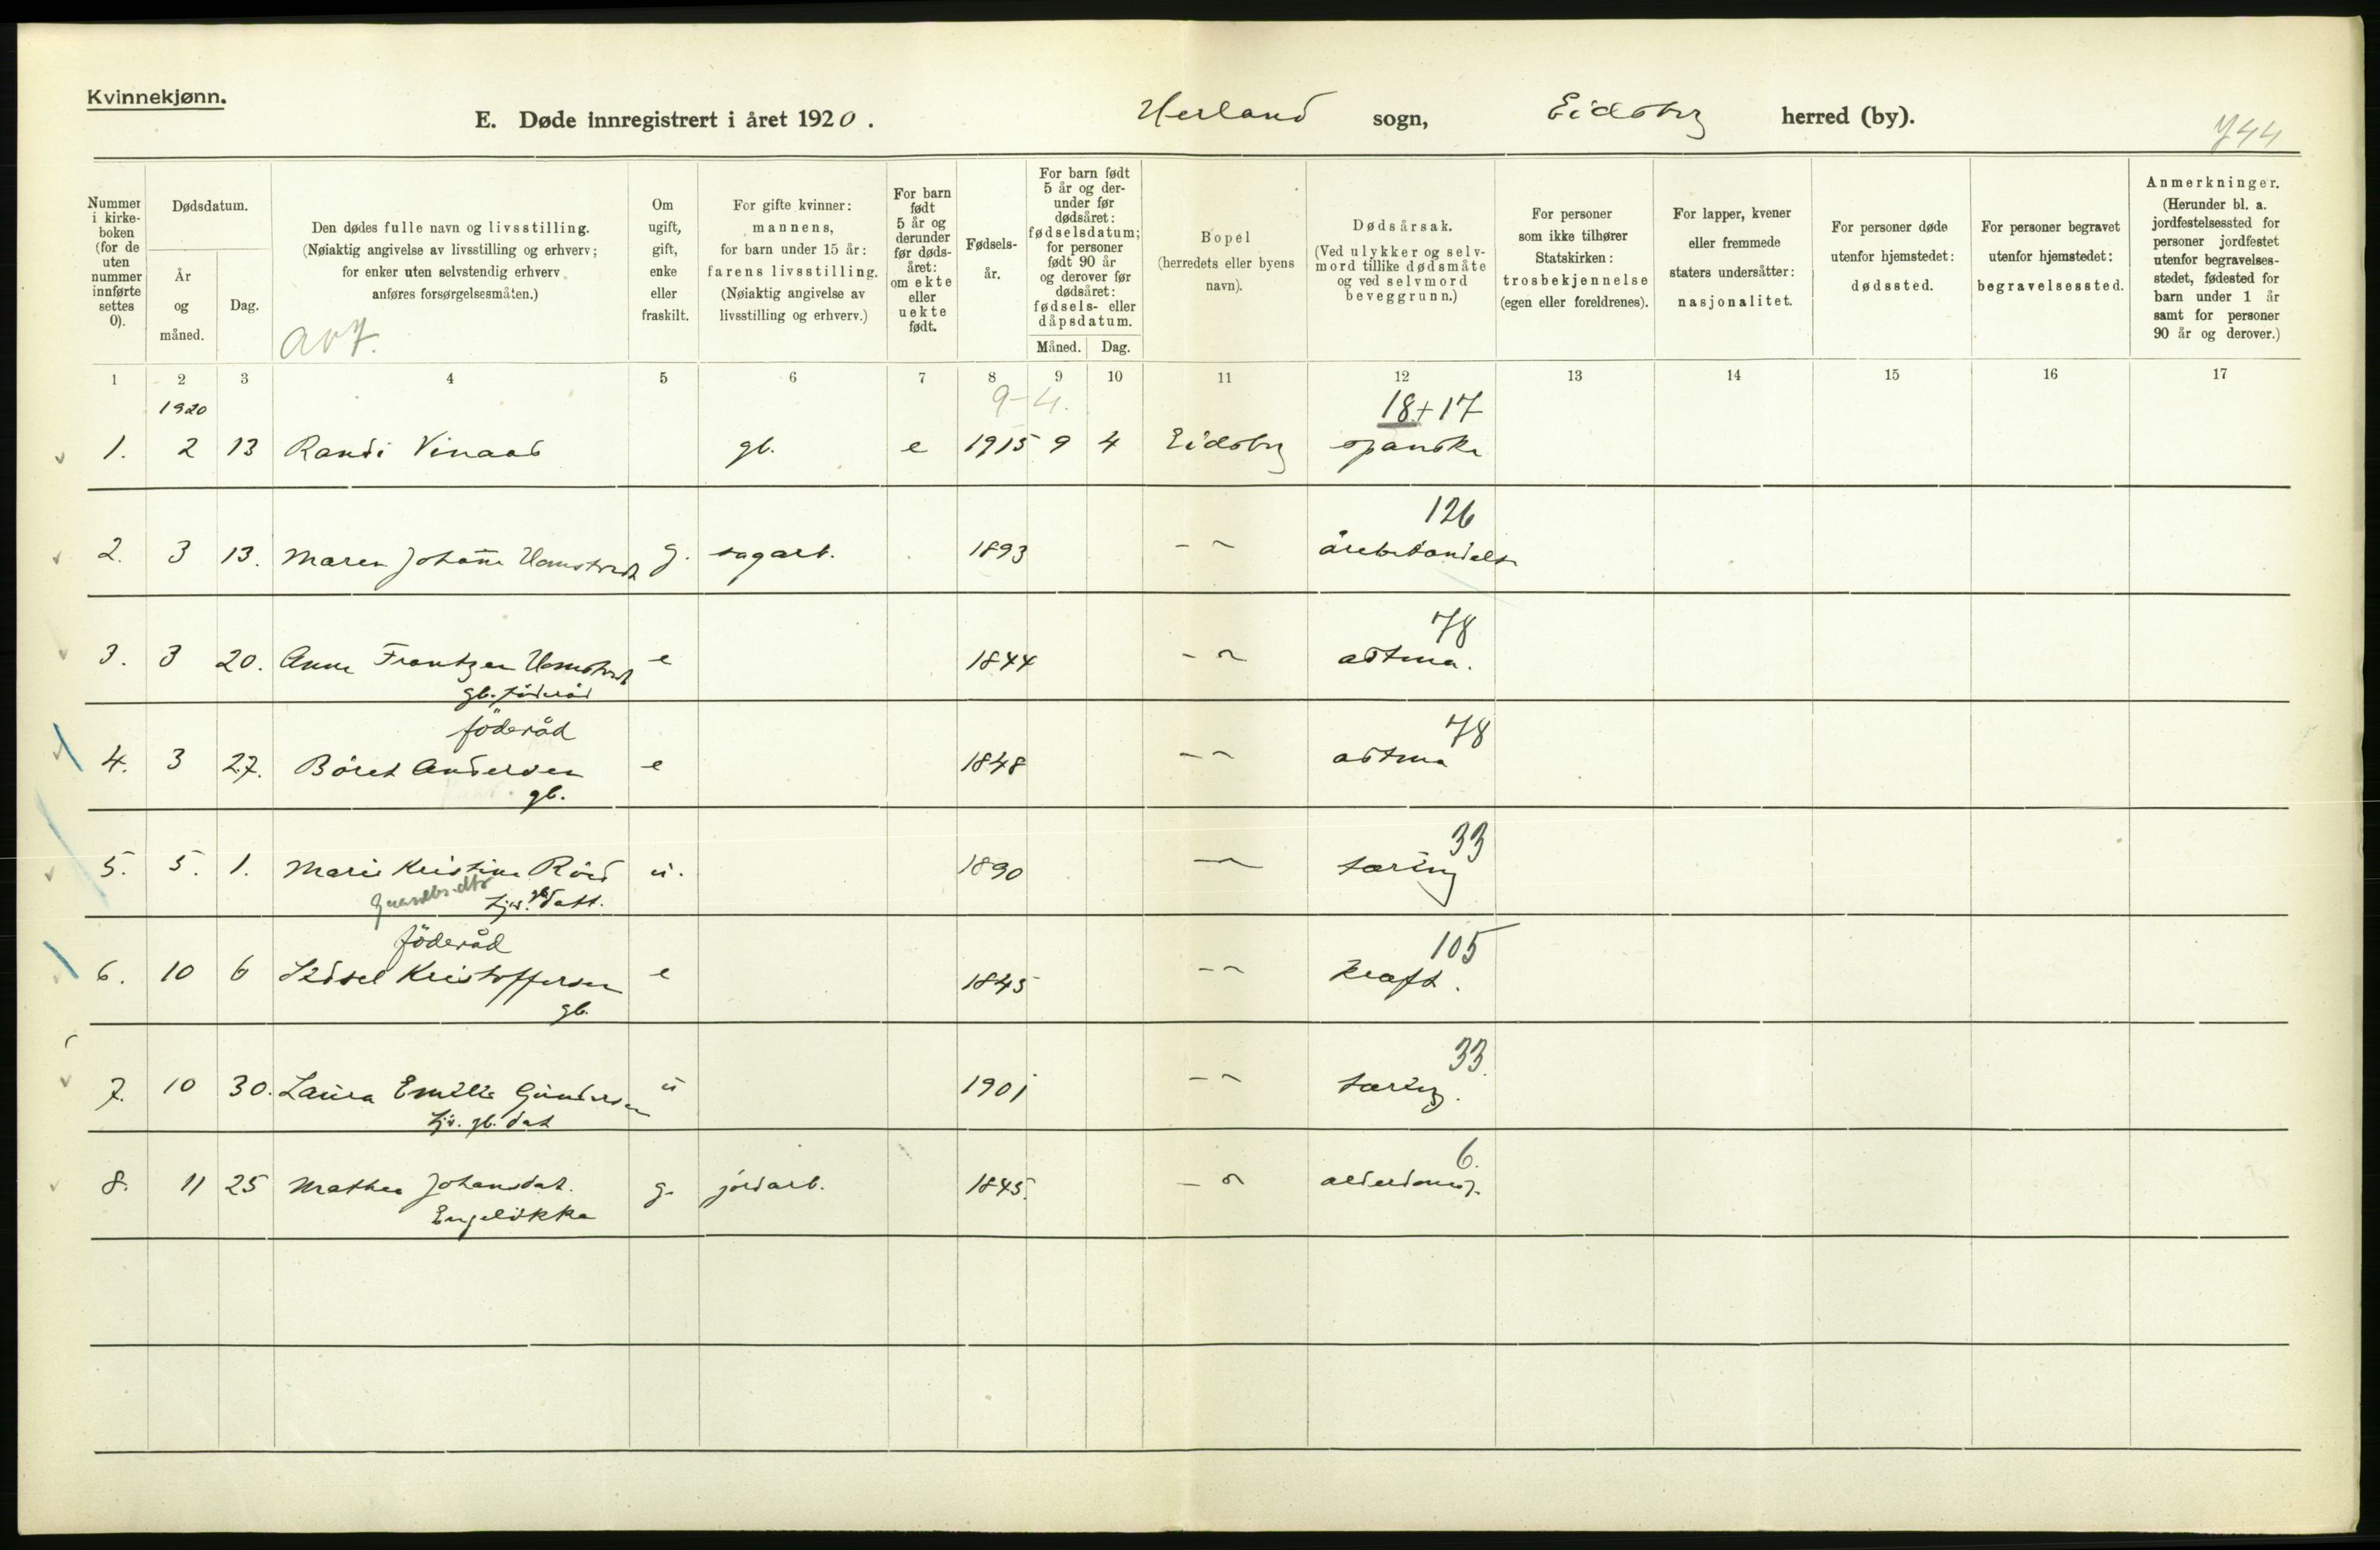 Kvinnekjønn.
E. Døde innregistrert i året 1920. Herland sogn, Eidsberg herred (by).
744
Nummer i kirkeboken (for de uten nummer innførte settes 0).
Dødsdatum.
År og måned.
Dag.
Den dødes fulle navn og livsstilling.
(Nøiaktig angivelse av livsstilling og erhverv;
for enker uten selvstendig erhverv
anføres forsørgelsesmåten.)
avz.
Om ugift, gift, enke eller fraskilt.
For gifte kvinner:
mannens,
for barn under 15 år:
farens livsstilling.
(Nøiaktig angivelse av
livsstilling og erhverv.)
For barn født 5 år og derunder før dødsåret: om ekte eller uekte født.
Fødselsår.
For barn født 5 år og derunder før dødsåret: fødselsdatum; for personer født 90 år og derover før dødsåret: fødsels- eller dåpsdatum.
Måned. Dag.
Bopel
(herredets eller byens
navn).
Dødsårsak.
(Ved ulykker og selvmord tillike dødsmåte og ved selvmord beveggrunn.)
For personer
som ikke tilhører
Statskirken:
trosbekjennelse
(egen eller foreldrenes).
For lapper, kvener
eller fremmede
staters undersåtter:
nasjonalitet.
For personer døde
utenfor hjemstedet:
dødssted.
For personer begravet
utenfor hjemstedet:
begravelsessted.
Anmerkninger.
(Herunder bl. a.
jordfestelsessted for
personer jordfestet
utenfor begravelsesstedet, fødested for
barn under 1 år
samt for personer
90 år og derover.)
1 2 3 4 5 6 7 8 9 10 11 12 13 14 15 16 17
1920 9-4. 18+17
1. 2 13 Randi Vinaas gb. e 1915 9 4 Eidsberg spanske
126
2. 3 13. Maren Johanne g. sagarb. 1893 - - årebetændelse
78
3. 3 20. Anne Frantzen e 1844 - - astma.
gb. föderåd
föderåd 78
4. 3 27. Böret Andersen e 1848 - - astma
gb.
33
5. 5. 1. Marie Kristine Röed u. 1890 - tæring
Gaardbr.dtr tjs. gb datt.
föderåd 105
6. 10 6 Sidsel Kristoffersen e 1845 - - kræft.
gb.
33.
7. 10 30. Laura Emilie Gundersen u 1901 - - tæring.
tjs. gb. dat
6.
8. 11 25 Mathea Johansdat. g. jordarb. 1845. - - alderdomss.
Engelökka